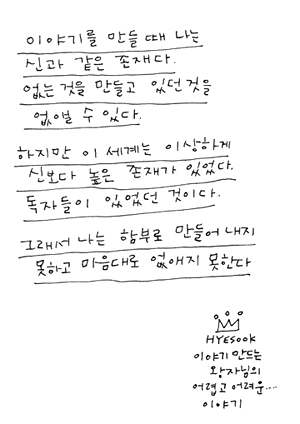 이야기를 만들 때 나는
신과 같은 존재다.
없는 것을 만들고 있던 것을
없앨 수 있다.
하지만 이 세계는 이상하게
신보다 높은 존재가 있었다.
독자들이 있었던 것이다.
그래서 나는 함부로 만들어 내지
못하고 마음대로 없애지 못한다
HYESOOK
이야기 만드는
왕자님의
어렵고 어려운...
이야기